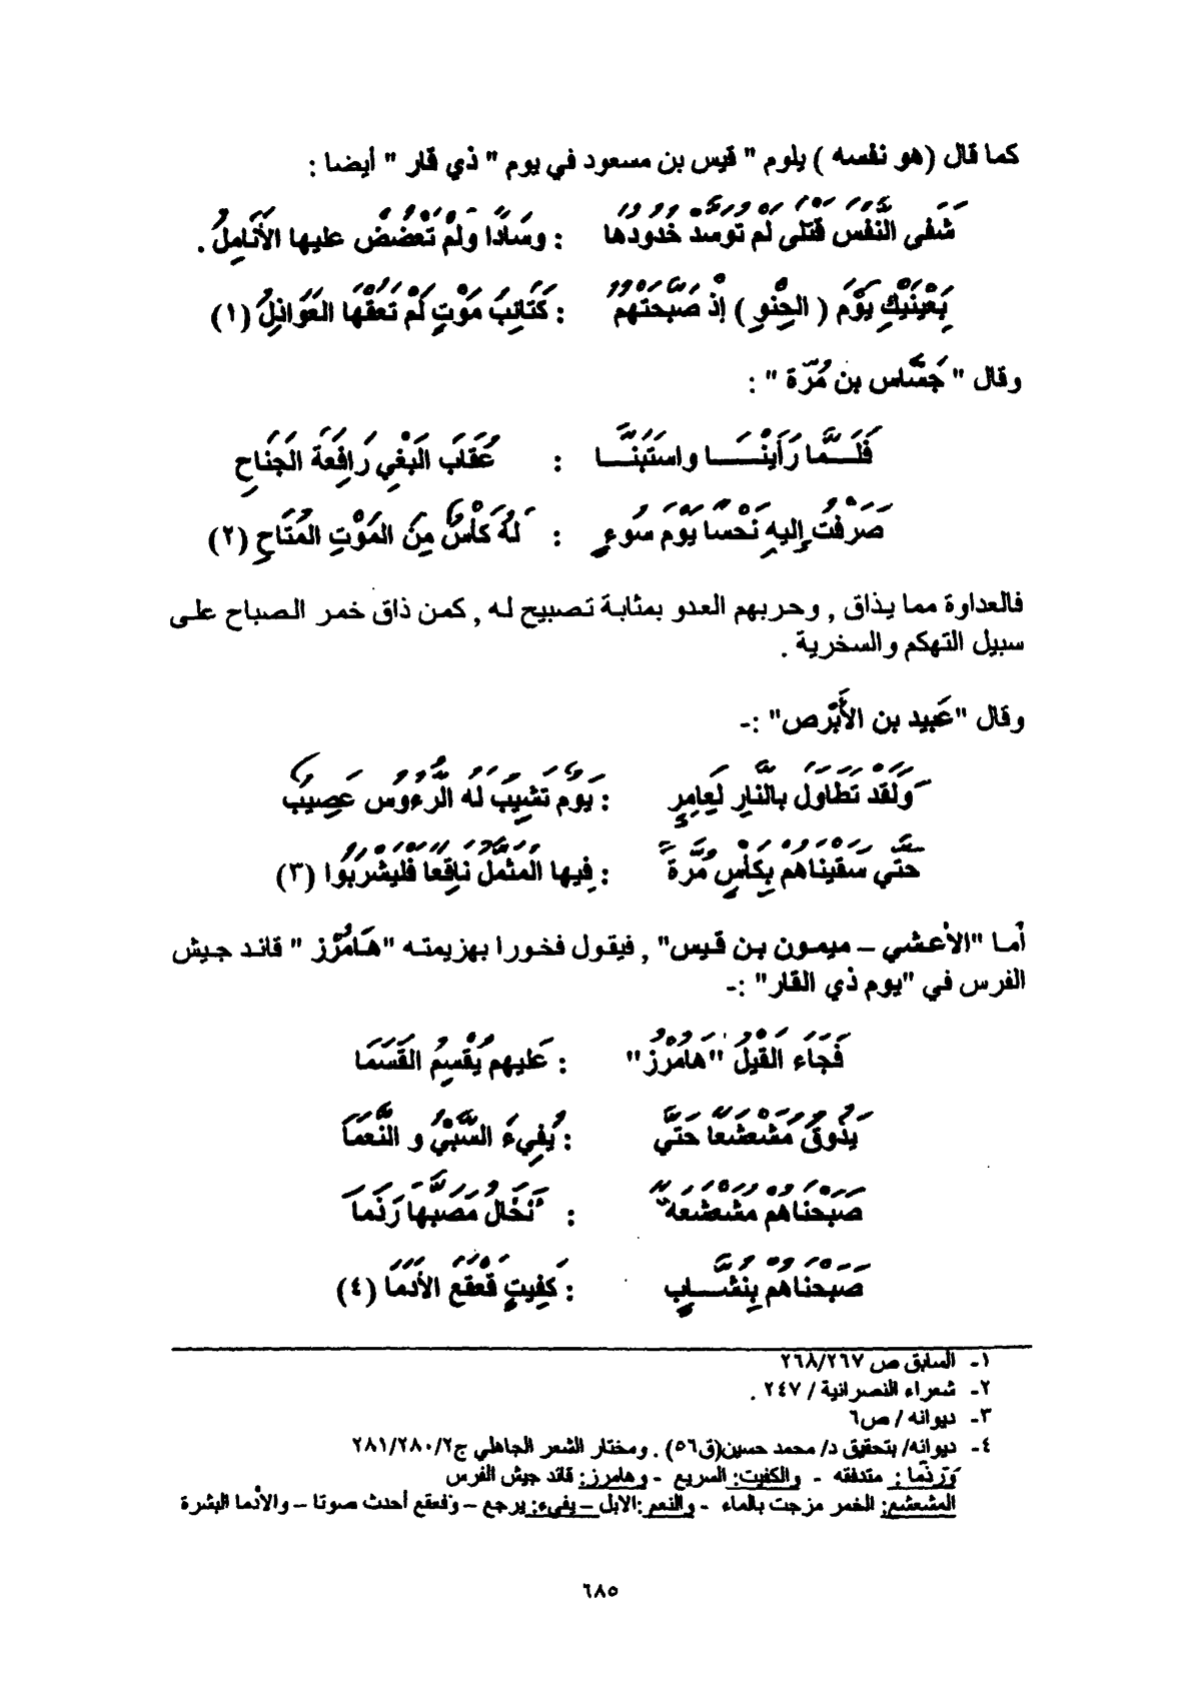 كما قال (هو نفسه ) يلوم " قيس بن مسعود في يوم " ذي قار " أيضا :
شَفى النَّفْسَ قَتْلى لَمْ تُوَسَّدْ خُدُودُها : وسَادًا ولَمْ تُعْضَضْ عليها الأَنَامِلُ .
بِعَيْنَيْكِ يَوْمَ ( الحِنْوِ ) إِذْ صَبَحَتْهُمُ : كَتَائِبُ مَوْتٍ لَمْ تَعُقْها العَوَاذِلُ (١)
وقال " جَسَّاس بن مُرّة " :
فَلَـــمَّا رَأَيْنَـــــا واسْتَبَنَّـــا : عُقَابَ البَغْيِ رَافِعَةَ الجَنَاحِ
صَرَفْتُ إِليهِ نَحْسًا يَوْمَ سُوءٍ : لَهُ كَأْسٌ مِنَ المَوْتِ المُتَاحِ (٢)
فالعداوة مما يذاق , وحربهم العدو بمثابة تصبيح له , كمن ذاق خمر الصباح على
سبيل التهكم والسخرية .
وقال "عَبيد بن الأَبْرص" :-
وَلَقَدْ تَطَاوَلَ بالنَّارِ لِعَامِرٍ : يَوْمٌ تَشِيبُ لَهُ الرُّءُوسُ عَصِيبُ
حَتَّى سَقَيْنَاهُم بِكَأْسٍ مُرَّةً : فِيها المُثَمَّلُ نَاقِعًا فَلْيَشْرَبُوا (٣)
أما "الأعشي – ميمون بن قيس" , فيقول فخورا بهزيمته "هَامُرْز " قائد جيش
الفرس في "يوم ذي القار" :-
فَجَاءَ القَيْلُ "هَامُرْزُ" : عَليهم يُقْسِمُ القَسَمَا
يَذُوقُ مُشَعْشَعًا حَتَّي : يُفِيءَ السَّبْيَ و النَّعَمَا
صَبَحْنَاهُمْ مُشَعْشَعَةً : تَخَالُ مَصَبَّها رَذَمَا
صَبَحْنَاهُمْ بِنُشَّـــابٍ : كَفِيتٍ قَعْقَعَ الأَدَمَا (٤)
١- السابق ص ٢٦٨/٢٦٧
٢- شعراء النصرانية / ٢٤٧ .
٣- ديوانه / ص٦
٤- ديوانه/ بتحقيق د/ محمد حسين(ق٥٦) . ومختار الشعر الجاهلي ج٢٨١/٢٨٠/٢
وَرَذَمًا : متدفقه - والكفيت: السريع - وهامرز: قائد جيش الفرس
المشعشع: الخمر مزجت بالماء - والنعم :الابل – يفيء: يرجع – وقعقع أحدث صوتا – والأدما البشرة
٦٨٥